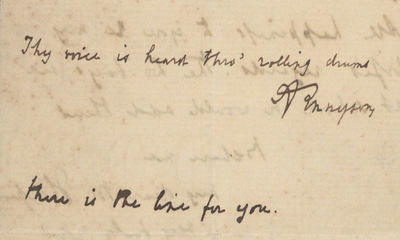 Thy voice is heard thro' rolling drums
ATennyson
there is the line for you.